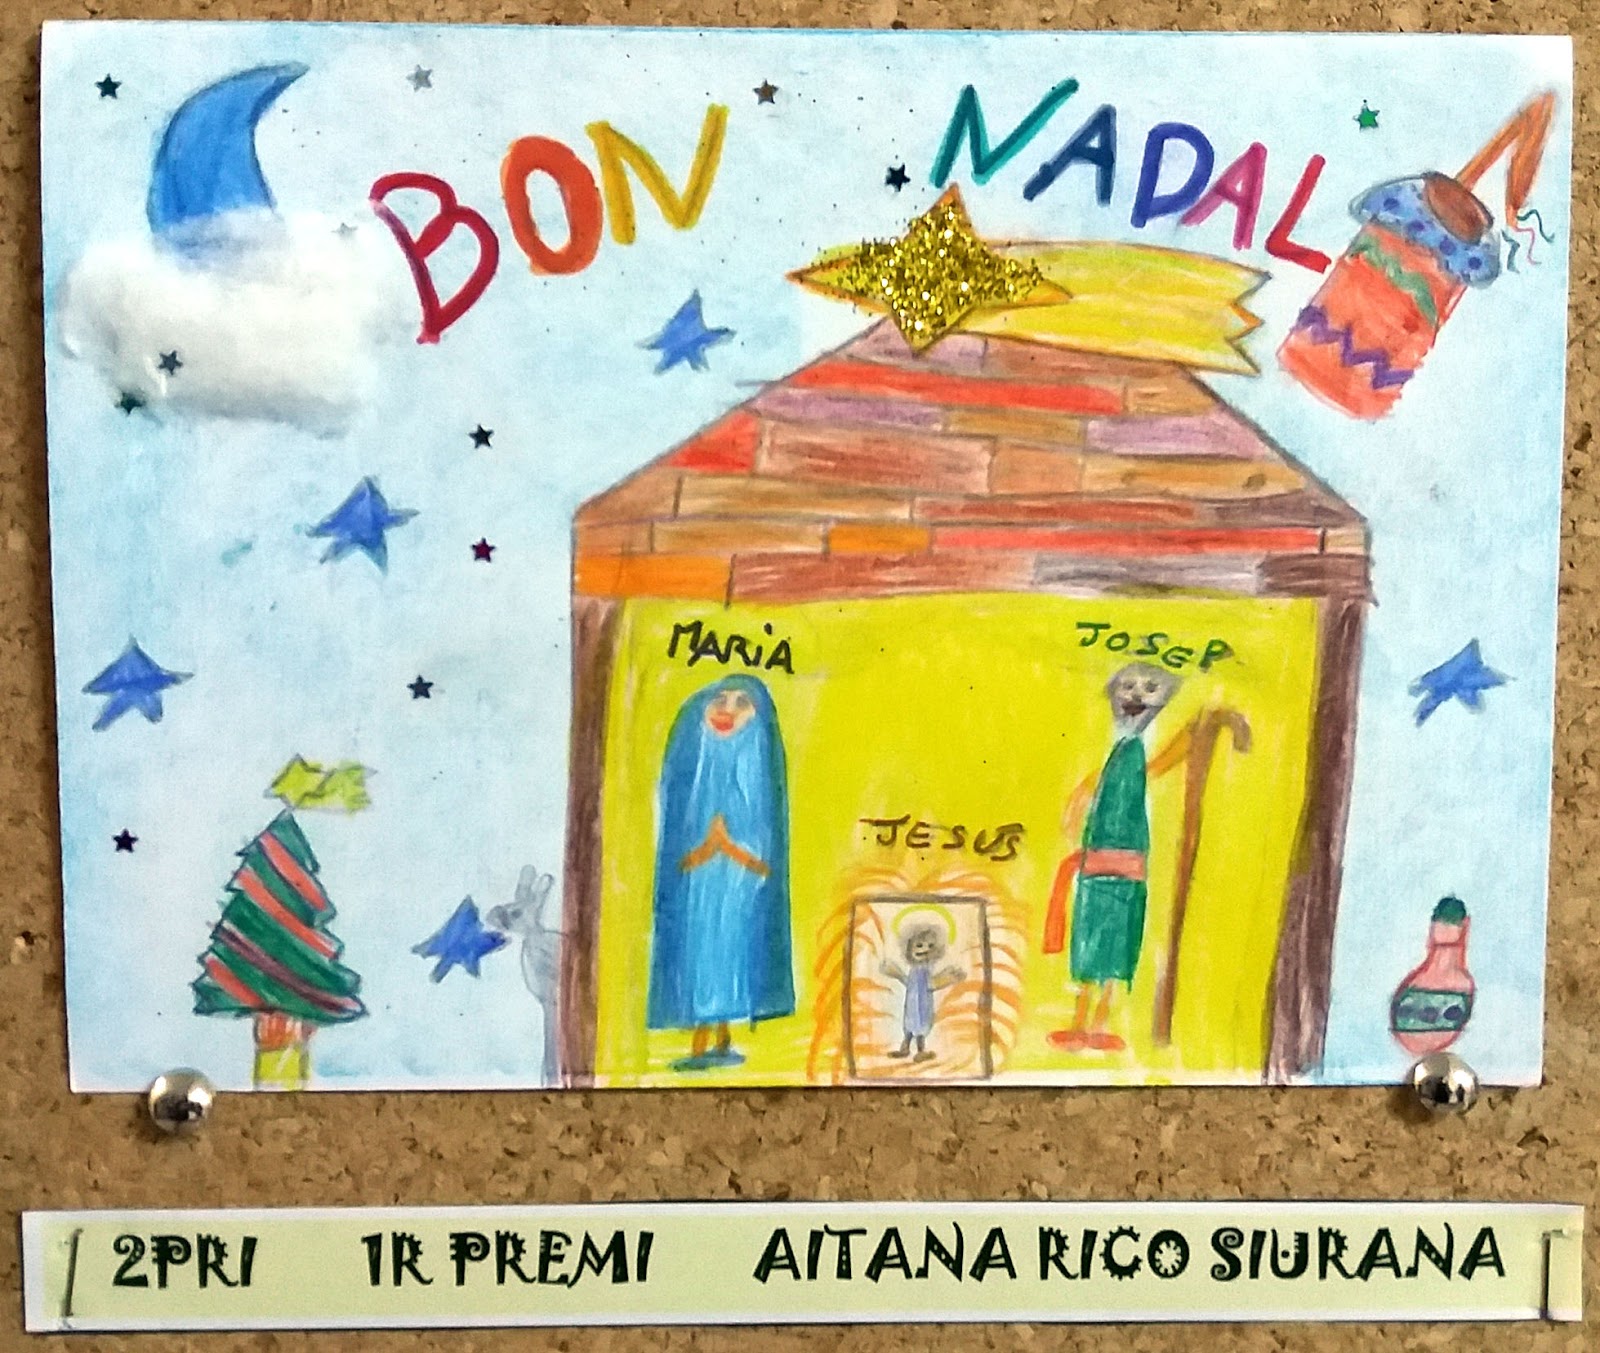 BON NADAL
MARiA
JOSEP
JESUS
2PRI 1R PREMI AITANA RICO SIURANA